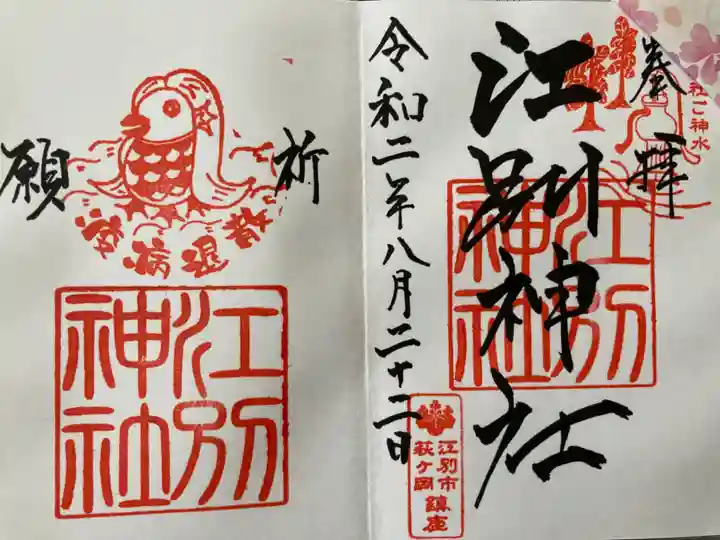 奉拝
社ご神水
江別神社
江別神社
令和二年八月二十二日
江別市
萩ヶ岡
鎮座
祈願
疫病退散
江別神社